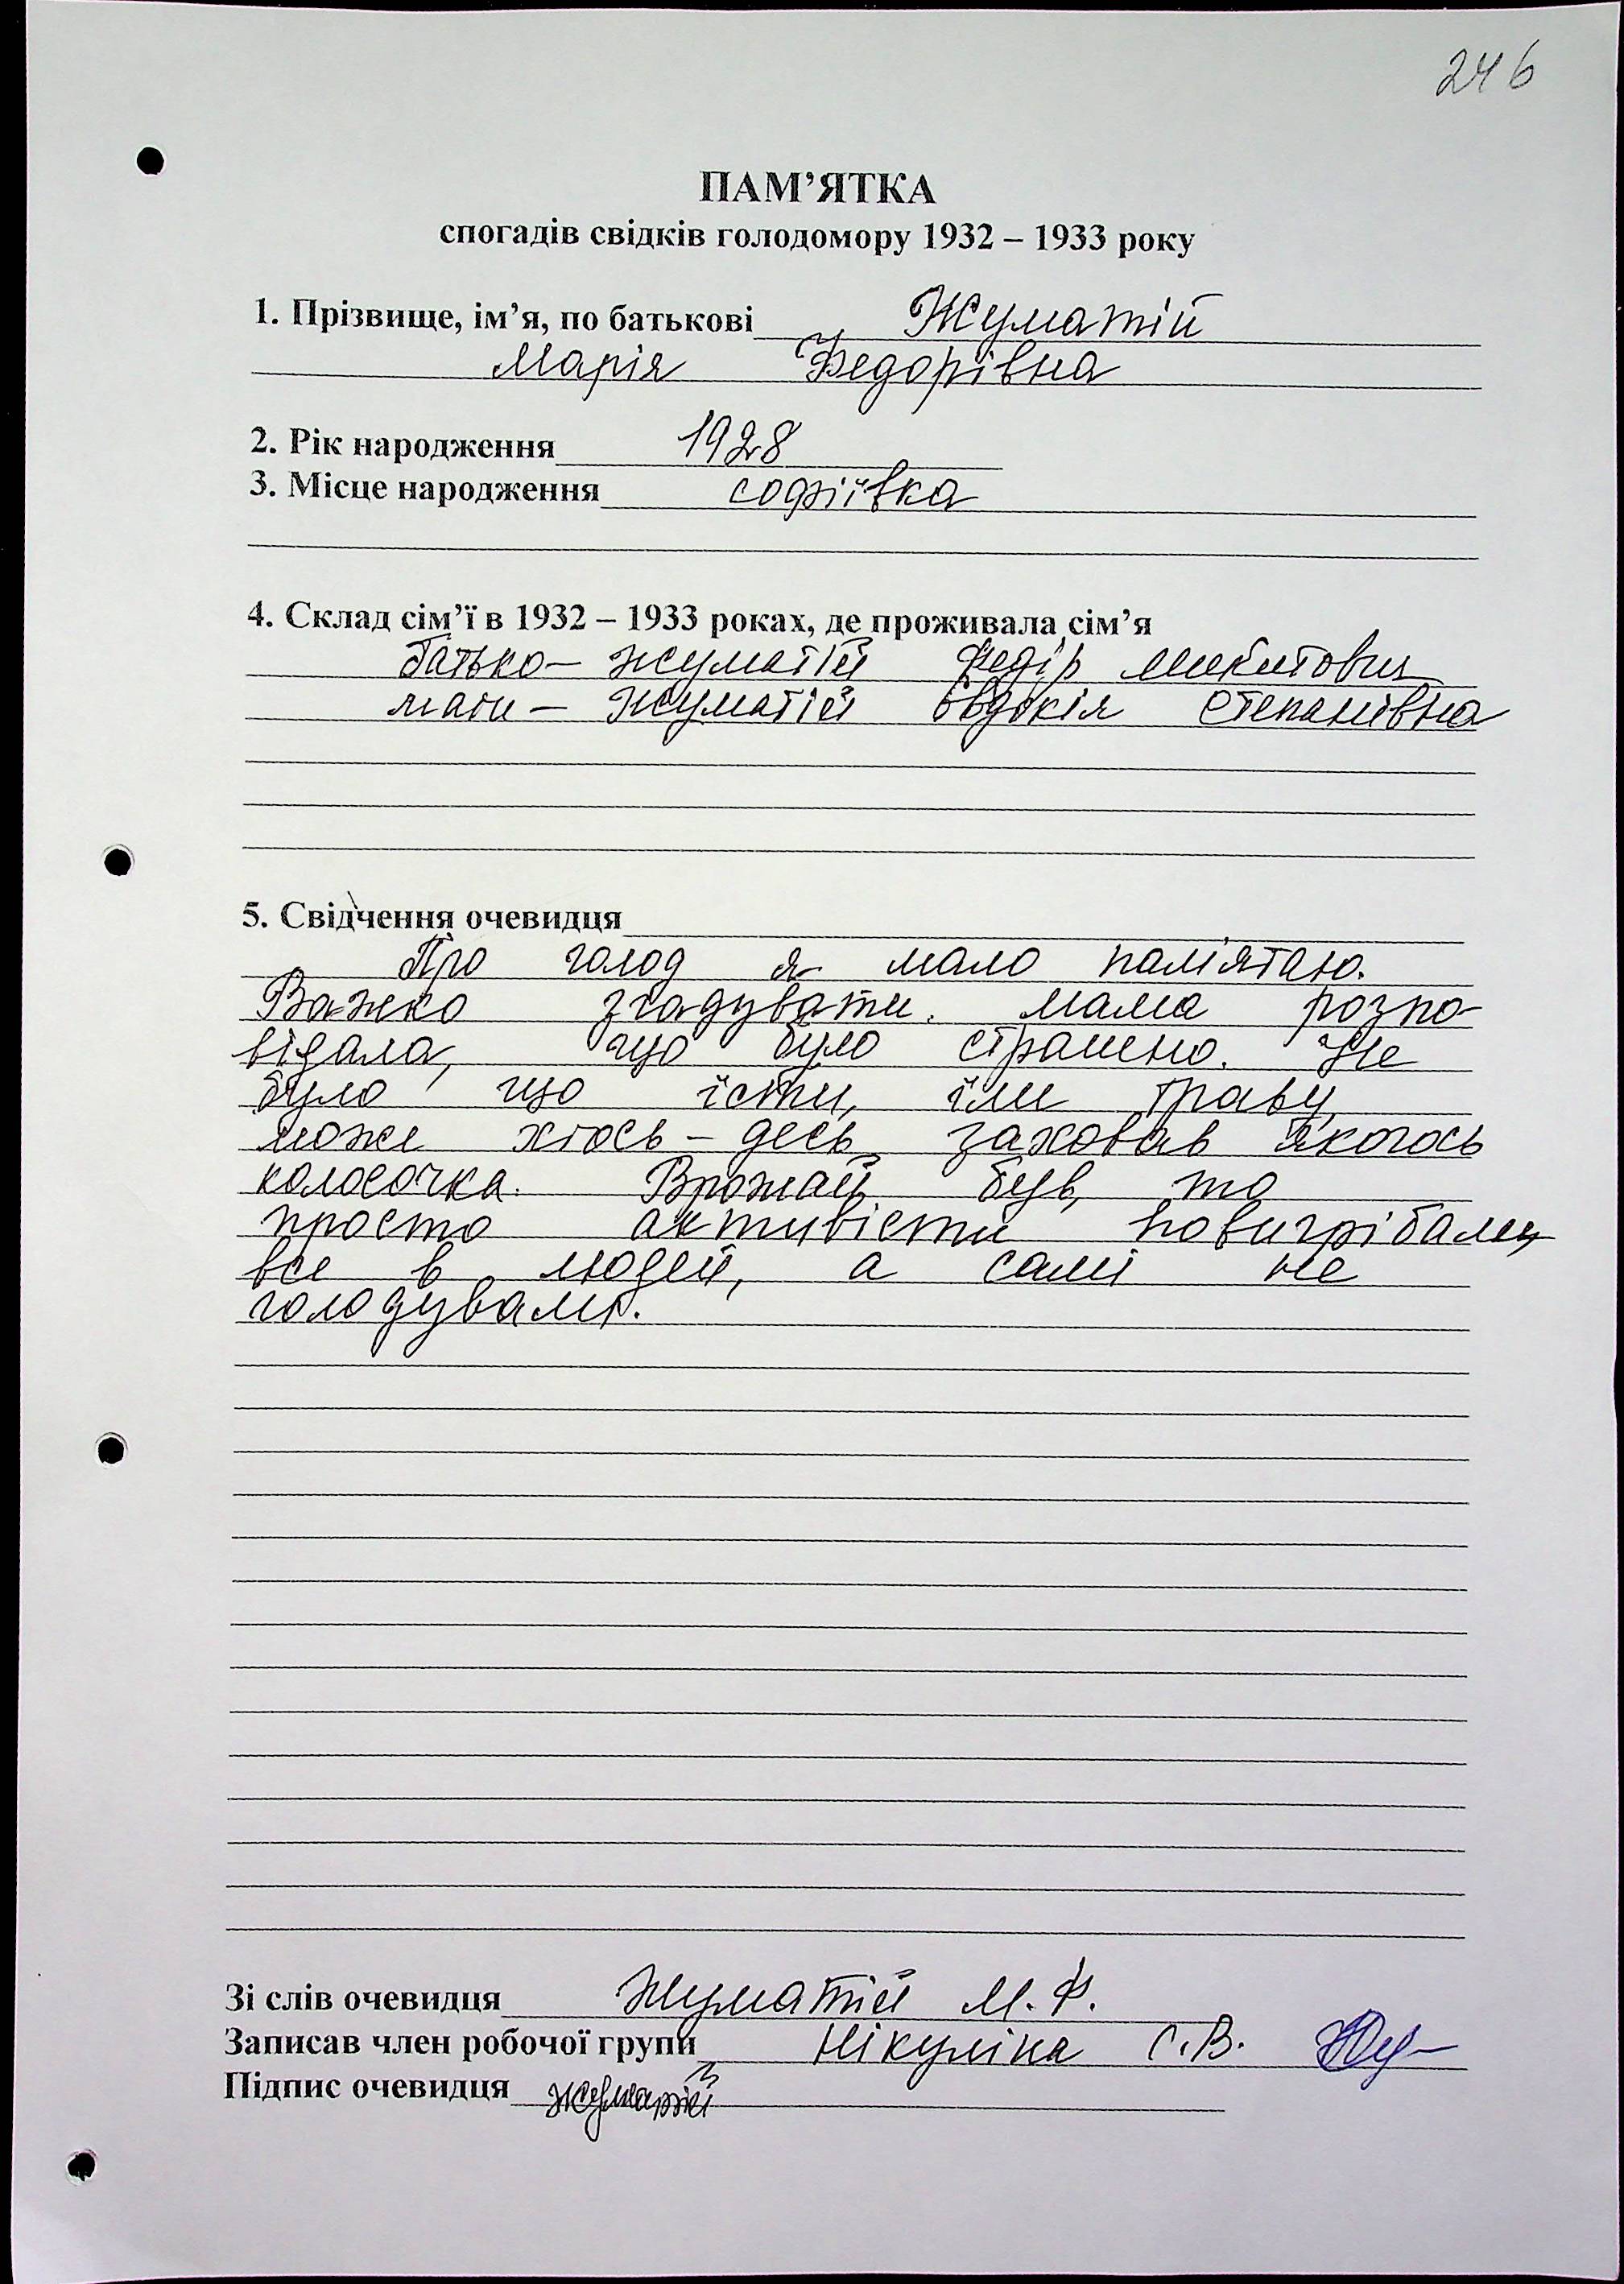 246
ПАМ’ЯТКА
спогадів свідків голодомору 1932 – 1933 року
1. Прізвище, ім’я, по батькові Жуматій
Марія Федорівна
2. Рік народження 1928
3. Місце народження софіївка
4. Склад сім’ї в 1932 – 1933 роках, де проживала сім’я
батько – Жуматій Федір Микитович
мати – Жуматій Євдокія Степанівна
5. Свідчення очевидця
Про голод я мало пам'ятаю.
Важко згадувати. Мама розпо-
відала, що було страшно. Не
було що їсти, їли траву,
може хтось-десь заховав якогось
колосочка. Врожай був, то
просто активісти повигрібали
все в людей, а самі не
голодували.
Зі слів очевидця Жуматій М.Ф.
Записав член робочої групи Нікуліна С.В.
Підпис очевидця Жуматій